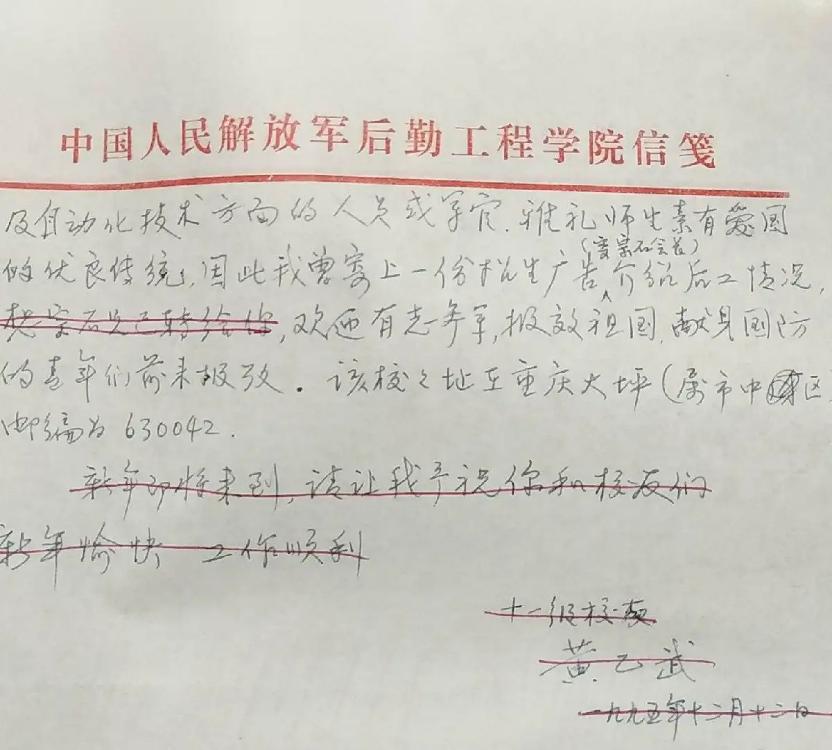 中国人民解放军后勤工程学院信笺
及自动化技术方面的人员或军官.雅礼师生素有爱国
的优良传统,因此我曾寄上一份招生广告介绍后工情况,
欢迎有志参军,报效祖国,献身国防
的青年们前来报效.该校之址在重庆大坪(属市中区)
邮编为630042.
新年即将来到,请让我予祝你和校友们
新年愉快 工作顺利
十一级校友
黄乙武
一九九五年十二月十二日